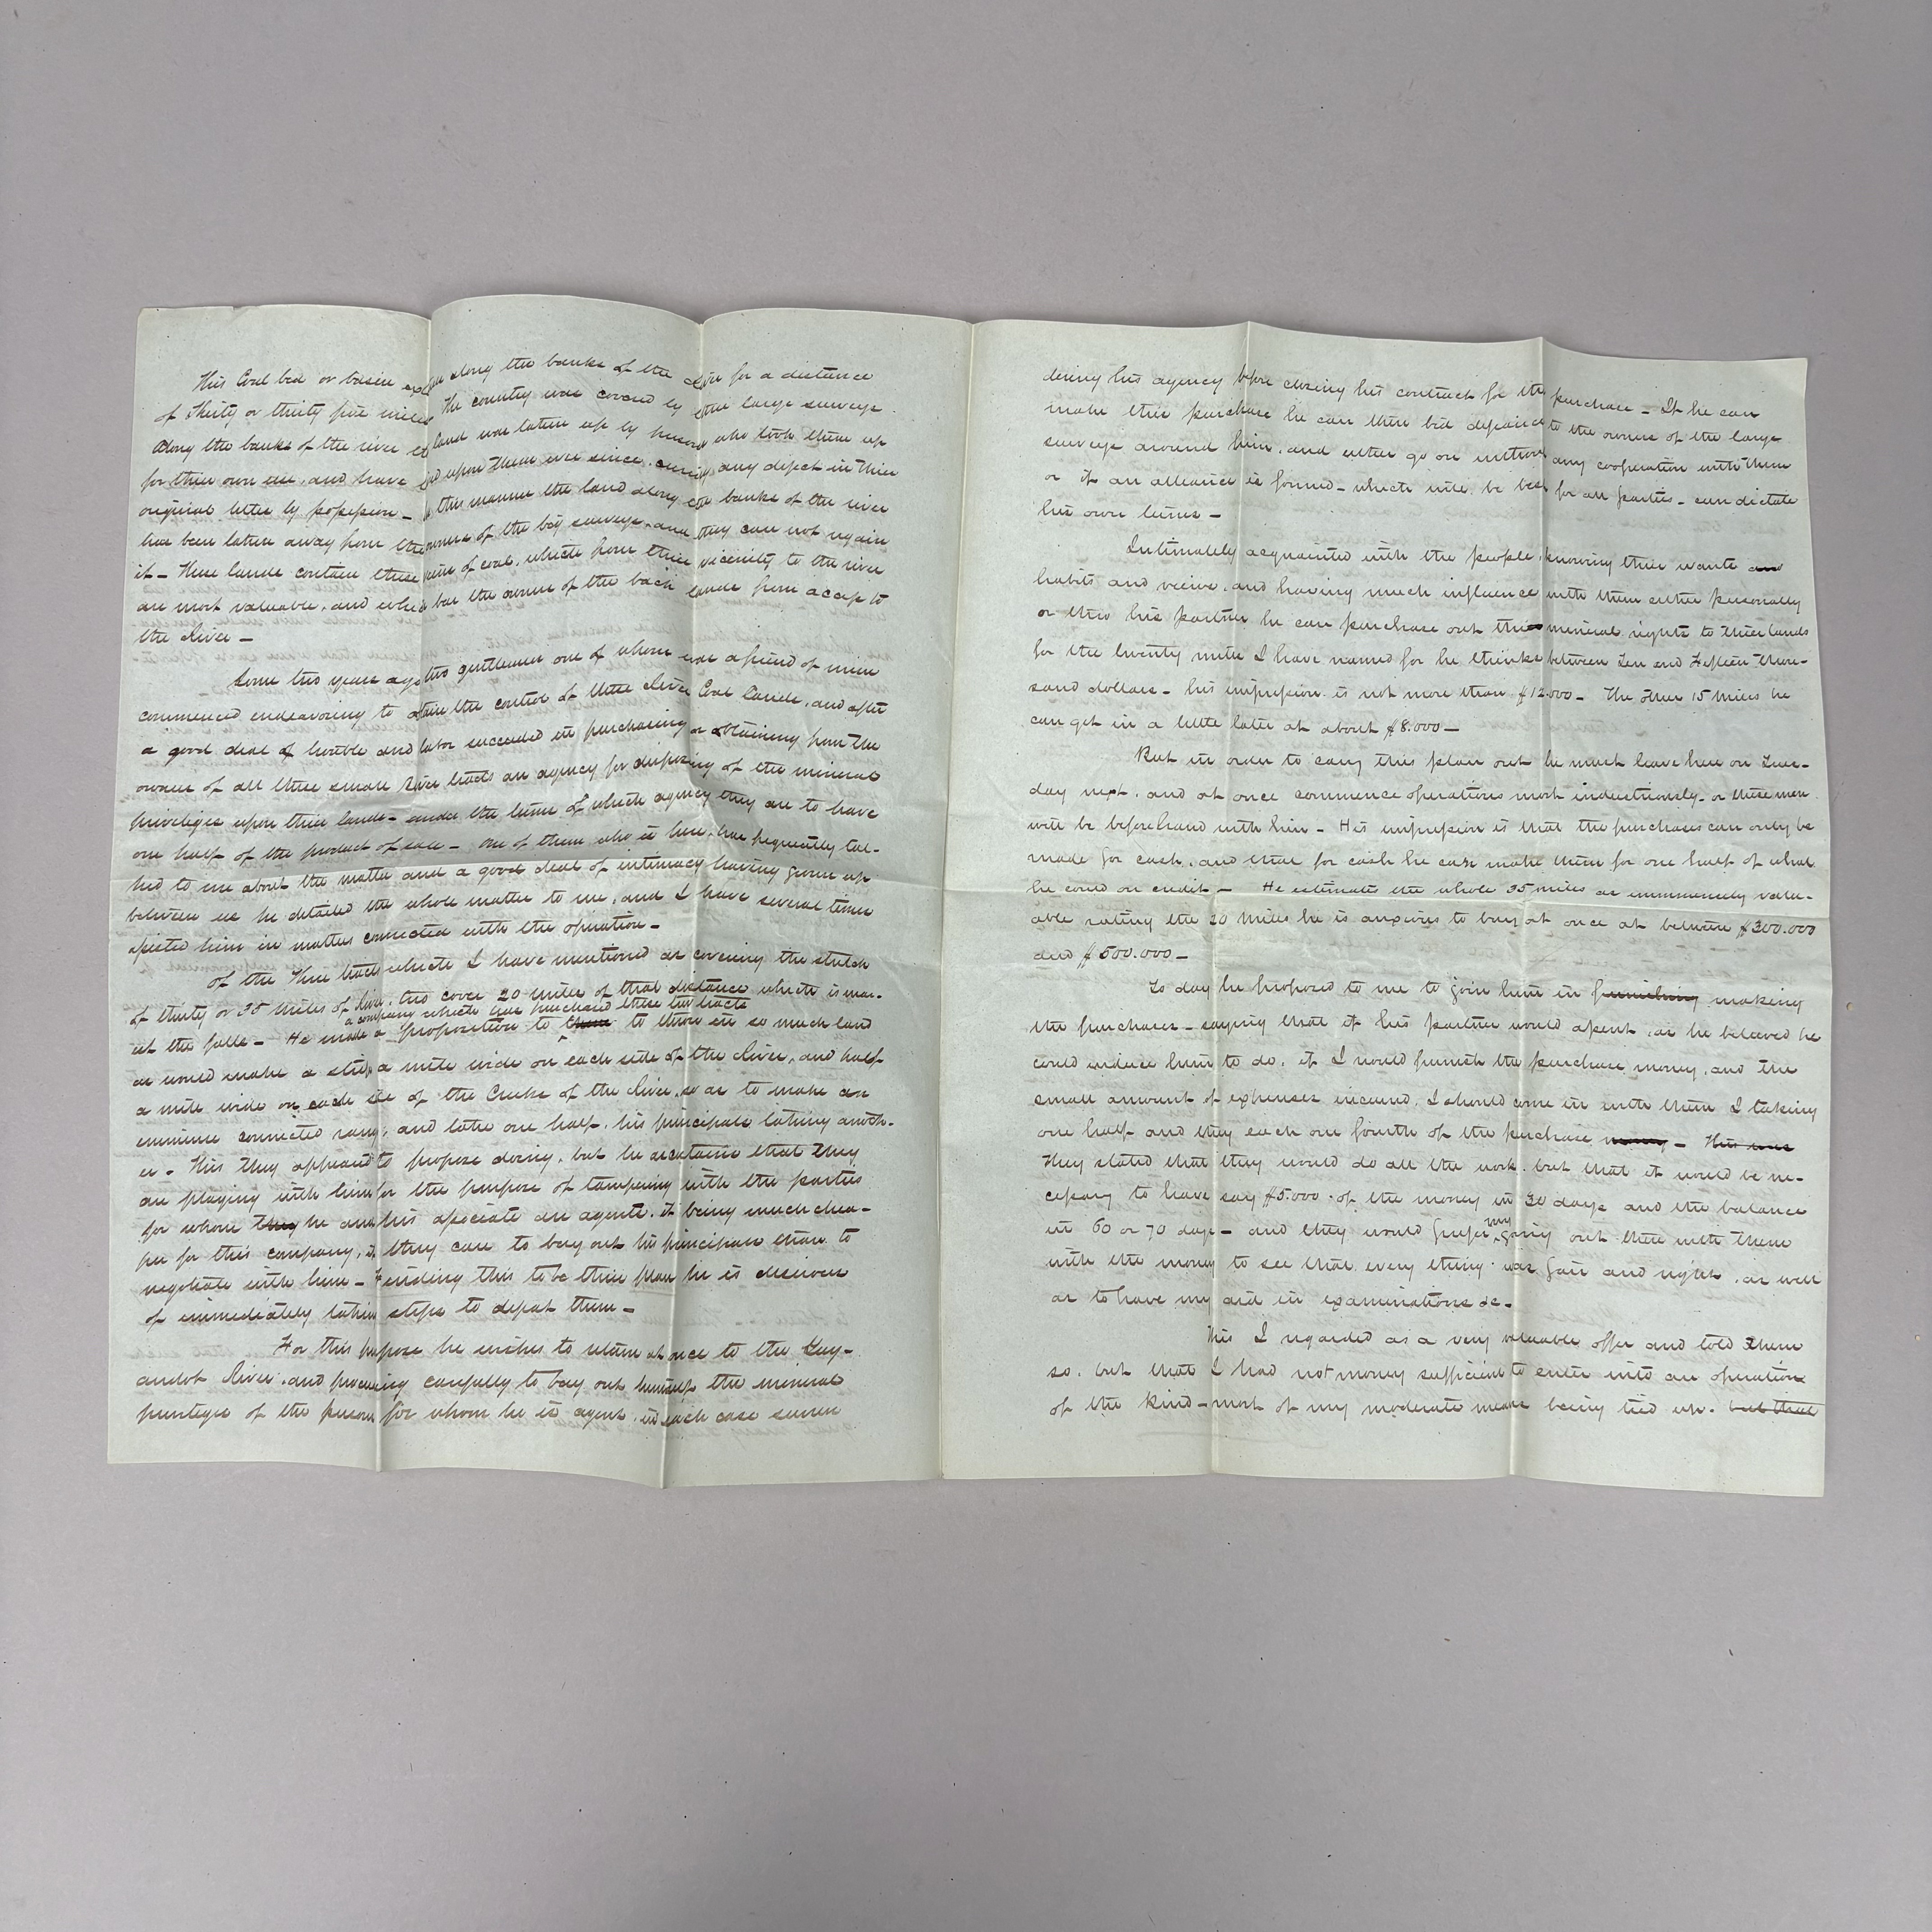 This Coal bed or basin extends along the banks of the River for a distance
of thirty or thirty five miles The country was covered by three large surveys.
Along the banks of the river land was taken up by persons who took them up
for their own use, and have upon them ever since, curing any defect in their
original titles by possession - in this manner the land along the banks of the river
has been taken away from the owners of the big surveys, and they can not regain
it - These lands contain these veins of coal, which from their vicinity to the river
are most valuable, and which bar the owners of the back lands from access to
the River -
Some two years ago two gentlemen one of whom was a friend of mine
commenced endeavoring to obtain the control of these River Coal Lands, and after
a good deal of trouble and labor succeeded in purchasing or obtaining from the
owners of all these small River tracts an agency for disposing of the mineral
privileges upon their lands - under the terms of which agency they are to have
one half of the product of sale - One of them who is here, has frequently tal-
ked to me about the matter and a good deal of intimacy having grown up
between us he detailed the whole matter to me, and I have several times
assisted him in matters connected with the operation -
Of the three tracts which I have mentioned as covering the stretch
of thirty or 35 miles of River, two cover 20 miles of that distance which is near-
a company which has purchased these two tracts
est the falls - He made a proposition to them to throw in so much land
as would make a strip a mile wide on each side of the River, and half
a mile wide on each side of the Creeks of the River, so as to make an
immense connected range, and take one half, his principals taking anoth-
er - This they appeared to propose doing, but he ascertains that they
are playing with him for the purpose of tampering with the parties
for whom they he and his associate are agents, it being much chea-
per for this company, if they can to buy out his principals than to
negotiate with him - Finding this to be their plan he is desirous
of immediately taking steps to defeat them -
For this purpose he wishes to return at once to the Guy-
andot River, and proceeding carefully to buy out himself the mineral
privileges of the persons for whom he is agent, in each case surren
dering his agency before closing his contract for the purchase - If he can
make this purchase he can then bid defiance to the owners of the large
surveys around him, and either go on without any cooperation with them
or if an alliance is formed - which will be best for all parties - can dictate
his own terms -
Intimately acquainted with the people, knowing their wants and
habits and views, and having much influence with them either personally
or thro his partner he can purchase out the mineral rights to their lands
for the twenty miles I have named for he thinks between Ten and Fifteen Thou-
sand dollars - his impression is not more than $12.000 - The other 15 miles he
can get in a little later at about $8.000 -
But in order to carry this plan out he must leave here on Tues-
day next, and at once commence operations most industriously - or these men
will be beforehand with him - His impression is that the purchases can only be
made for cash, and that for cash he can make them for one half of what
he could on credit - He estimates the whole 35 miles as immensely valu-
able rating the 20 miles he is anxious to buy at once at between $300.000
and $500.000 -
To day he proposed to me to join him in furnishing making
the purchases - saying that if his partner would assent, as he believed he
could induce him to do, if I would furnish the purchase money, and the
small amount of expenses incurred, I should come in with them I taking
one half and they each one fourth of the purchase money - This was
They stated that they would do all the work, but that it would be ne-
cessary to have say $5.000. of the money in 30 days and the balance
in 60 or 70 days - and they would prefer my going out there with them
with the money to see that every thing was fair and right, as well
as to have my aid in examinations &c -
This I regarded as a very valuable offer and told them
so, but that I had not money sufficient to enter into an operation
of the kind - most of my moderate means being tied up. but that